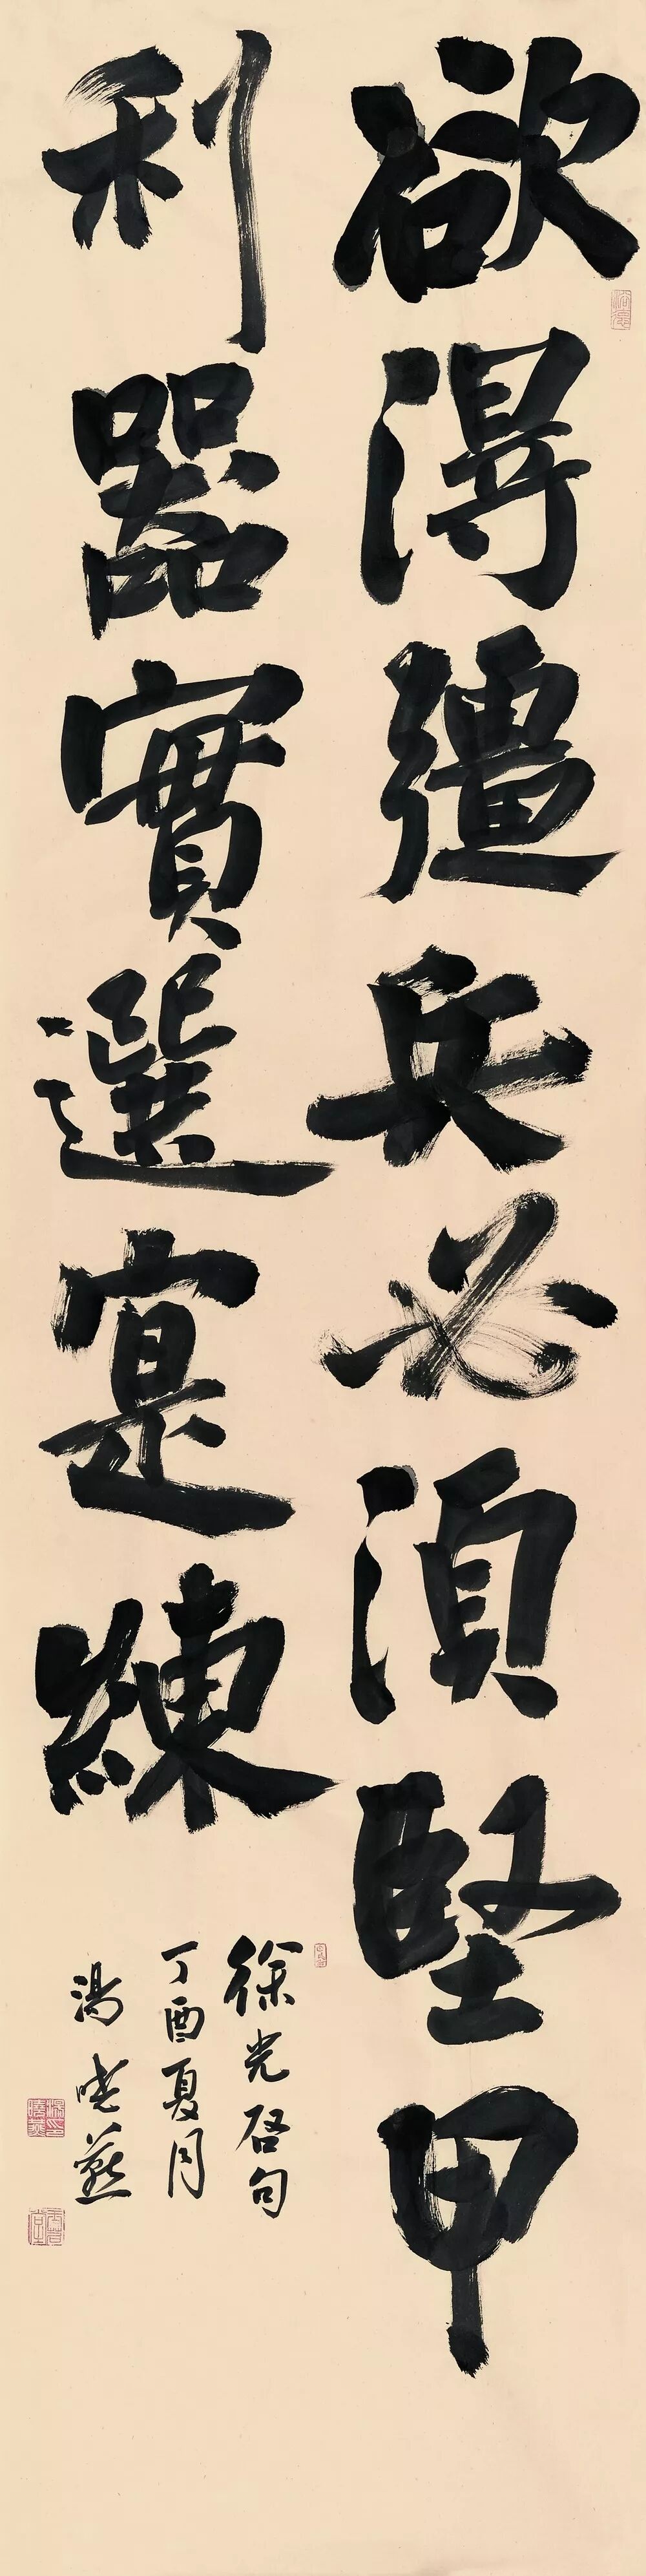 欲得彊兵必須堅甲
利器實選寔練
徐光啓句
丁酉夏月
湯曉燕